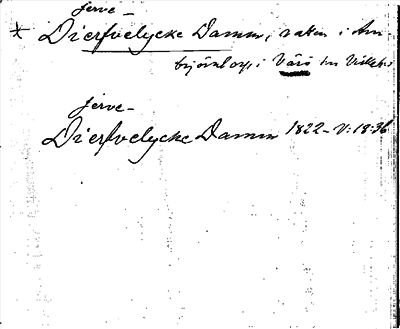 jerve-
* Dierfvelycke Damm, vaken i Arn
björnlopp i Värö sn Viske hd
jerve-
Dierfvelycke Damm 1822-V:18:36